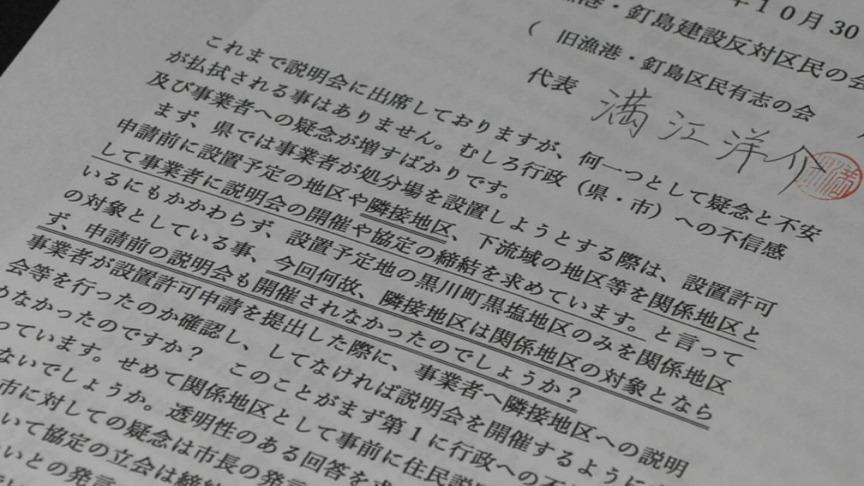 年１０月30
漁港・釘島建設反対区民の会
（ 旧漁港・釘島区民有志の会
代表 満江洋介
これまで説明会に出席しておりますが、何一つとして疑念と不安
が払拭される事はありません。むしろ行政（県・市）への不信感
及び事業者への疑念が増すばかりです。
まず、県では事業者が処分場を設置しようとする際は、設置許可
申請前に設置予定の地区や隣接地区、下流域の地区等を関係地区と
して事業者に説明会の開催や協定の締結を求めています。と言って
いるにもかかわらず、設置予定地の黒川町黒塩地区のみを関係地区
の対象としている事、今回何故、隣接地区は関係地区の対象となら
ず、申請前の説明会も開催されなかったのでしょうか？
事業者が設置許可申請を提出した際に、事業者へ隣接地区への説明
会等を行ったのか確認し、してなければ説明会を開催するように
めなかったのですか？ このことがまず第１に行政への不
っています。せめて関係地区として事前に住民説
ないでしょうか。透明性のある回答を
市に対しての疑念は市長の発
いて協定の立会は締
いとの発言